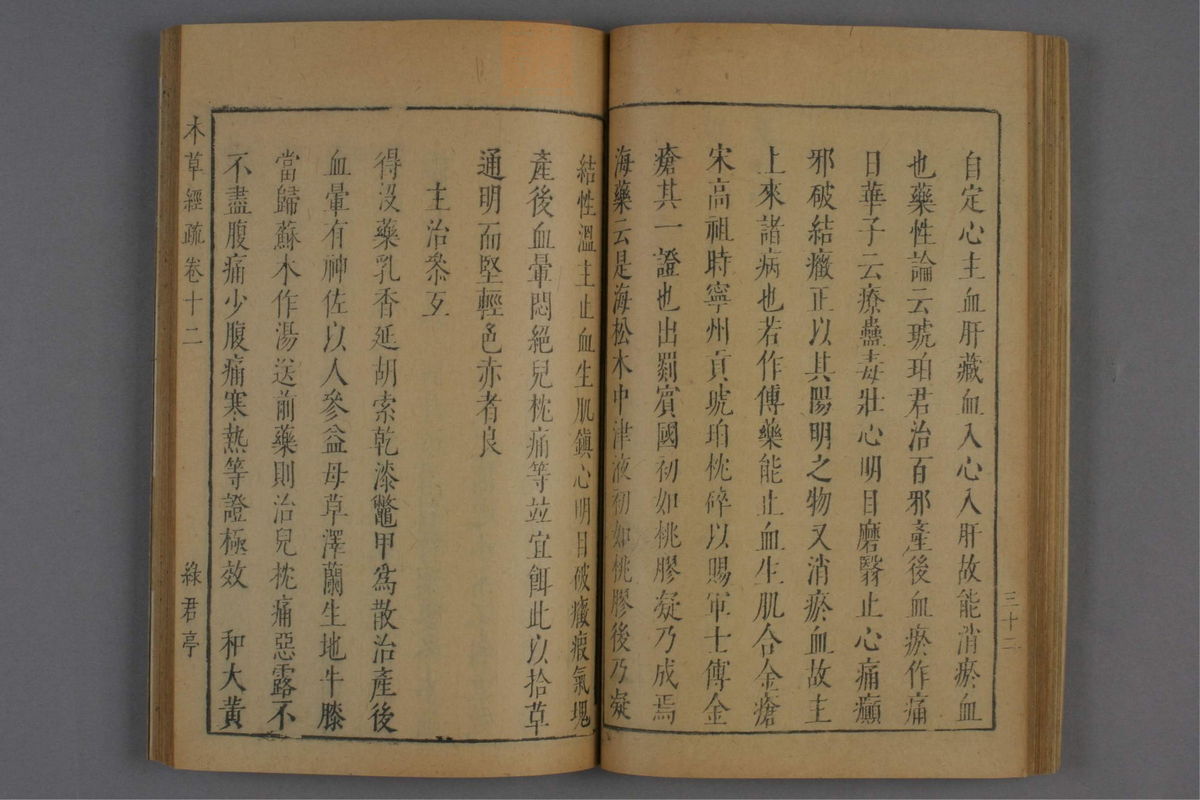 三十二
自定心主血肝藏血入心入肝故能消瘀血
也藥性論云琥珀君治百邪產後血瘀作痛
日華子云療蠱毒壯心明目磨翳止心痛癲
邪破結癥正以其陽明之物又消瘀血故主
上來諸病也若作傅藥能止血生肌合金瘡
宋高祖時寧州貢琥珀枕碎以賜軍士傅金
瘡其一證也出罽賓國初如桃膠凝乃成焉
海藥云是海松木中津液初如桃膠後乃凝
結性溫主止血生肌鎮心明目破癥瘕氣塊
產後血暈悶絕兒枕痛等並宜餌此以拾草
通明而堅輕色赤者良
主治參互
得沒藥乳香延胡索乾漆鼈甲為散治產後
血暈有神佐以人參益母草澤蘭生地牛膝
當歸蘇木作湯送前藥則治兒枕痛惡露不
不盡腹痛少腹痛寒熱等證極效 和大黃
本草經疏卷十二 綠君亭